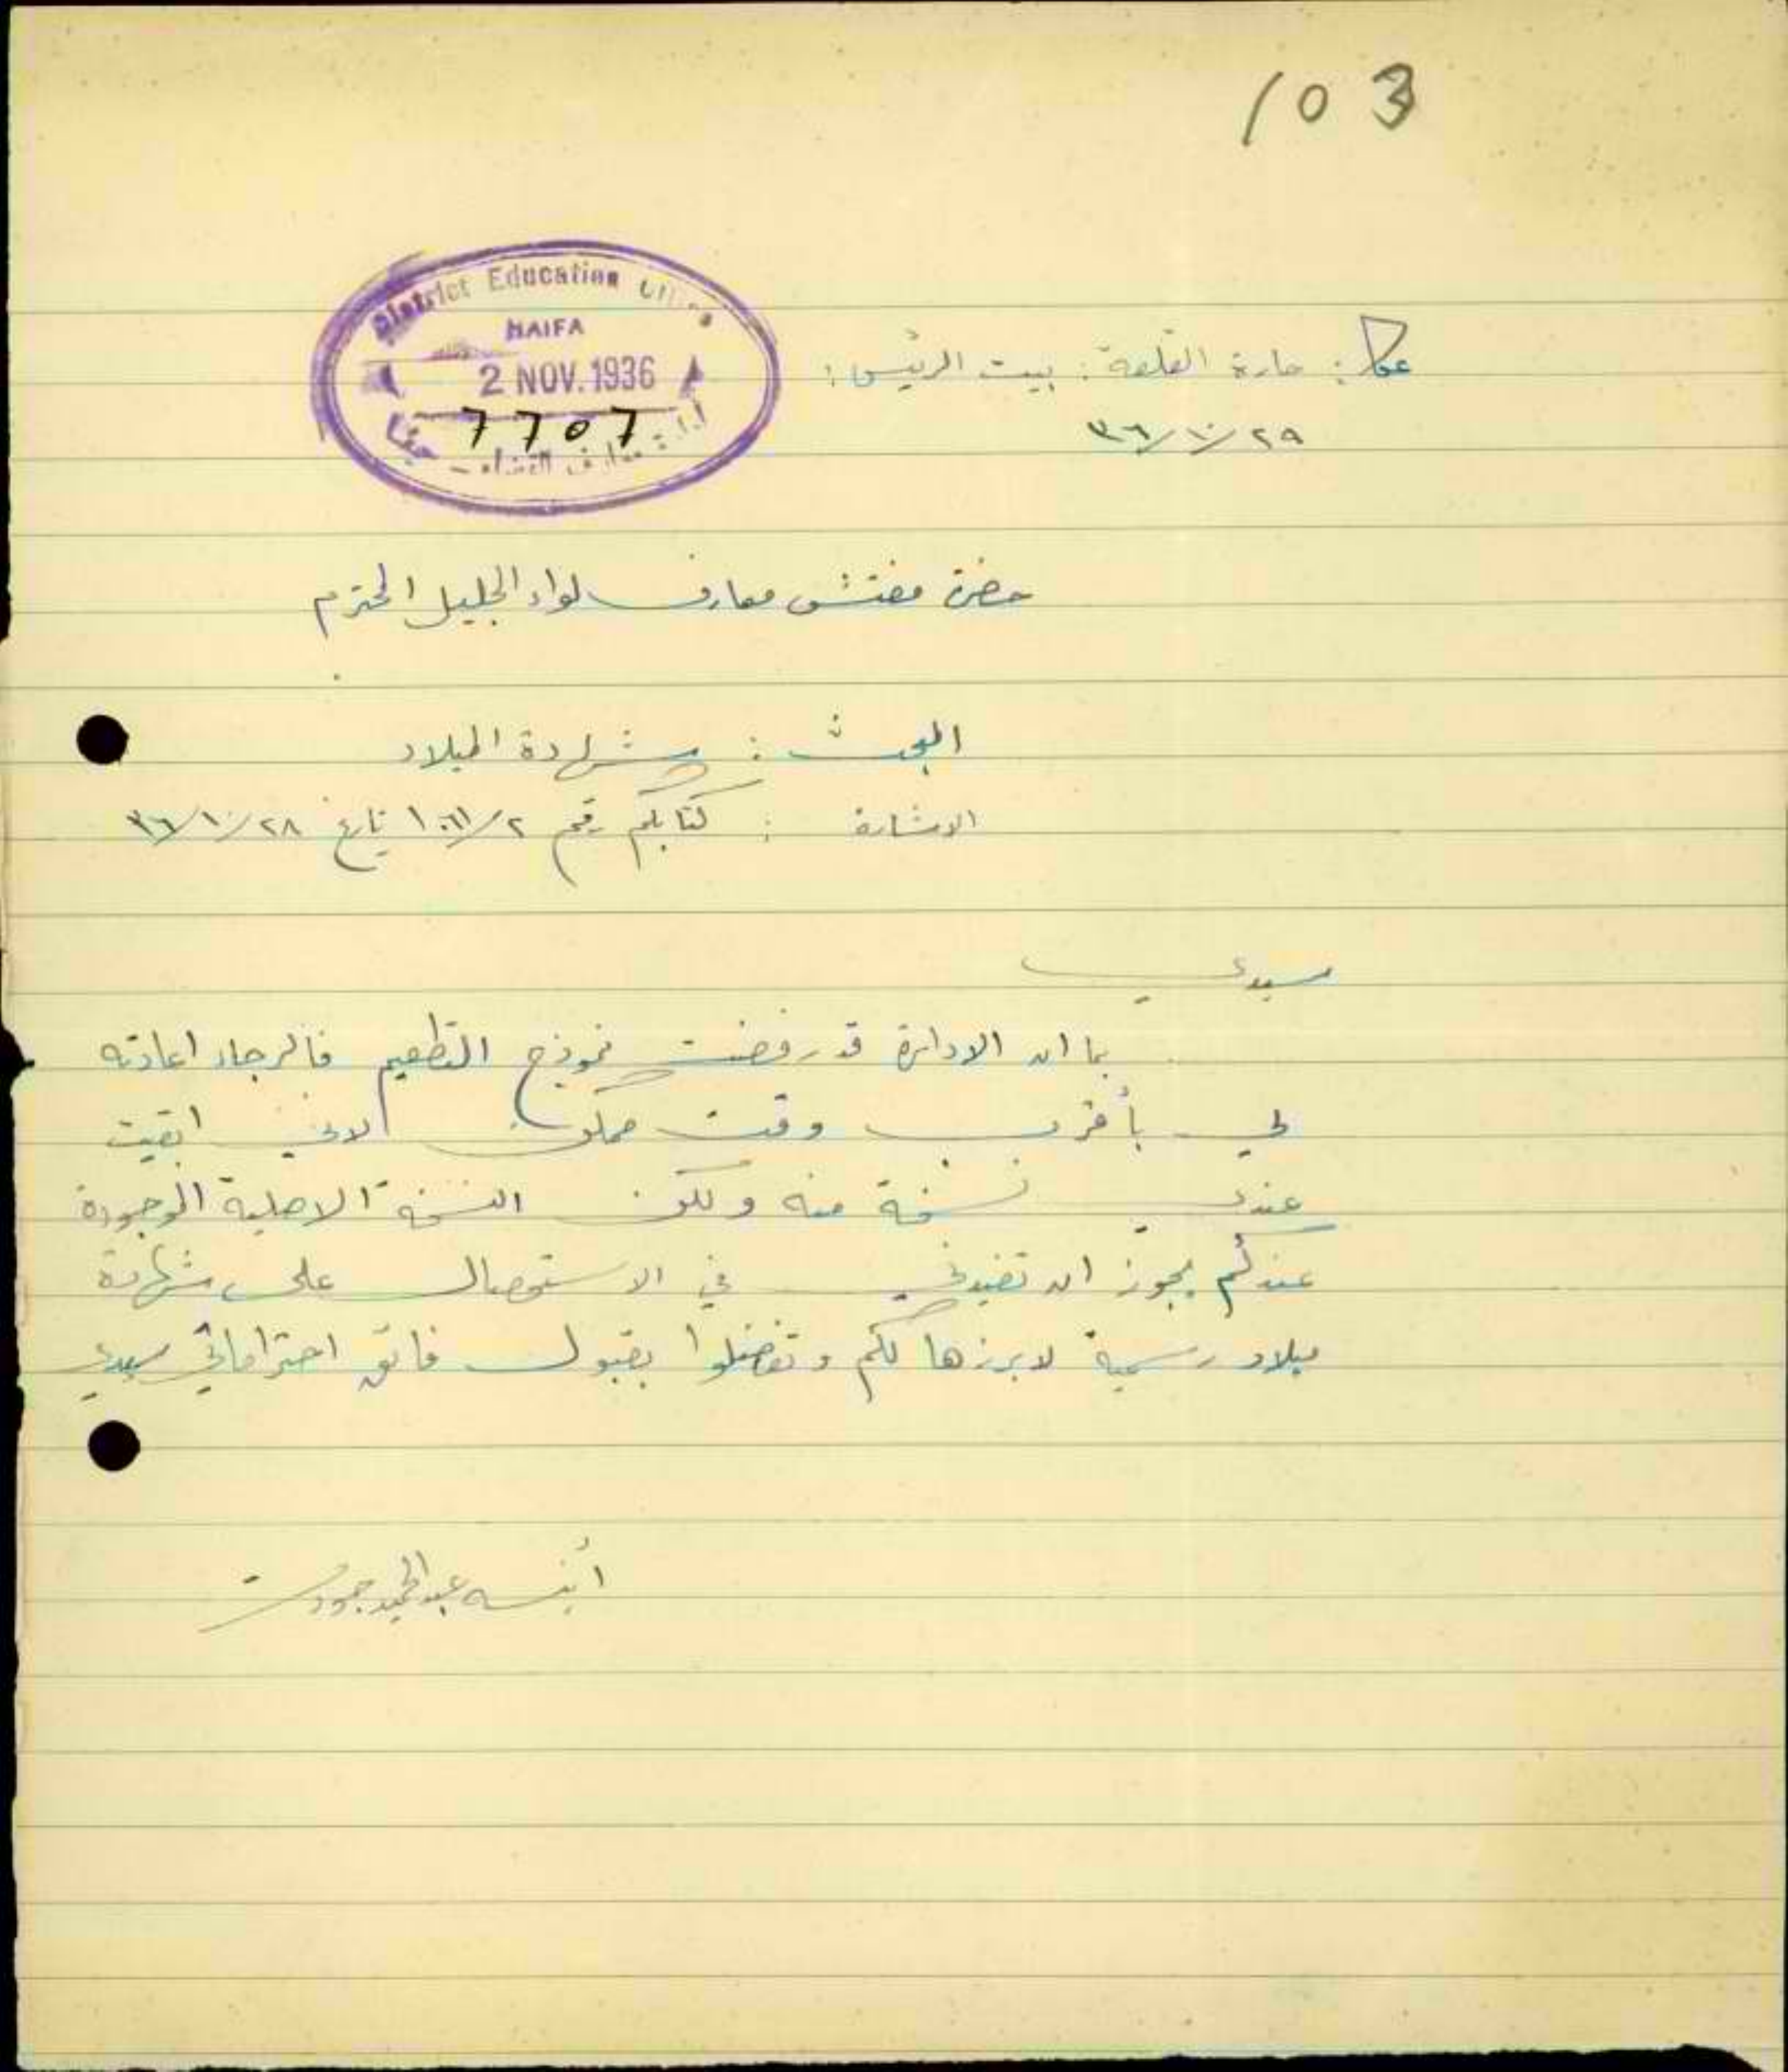 103
District Education Office
HAIFA
2 NOV. 1936
7707
ادارة معارف القضاء - حيفا
عكا: حارة القلعة: بيت الرئيس:
٢٩/١٠/٣٦
حضرة مفتش معارف لواء الجليل المحترم
البحث : شهادة الميلاد
الاشارة : كتابكم رقم ١٠٦١/٢ تاريخ ٢٨/١٠/٣٦
سيدي
بما ان الادارة قد رفضت نموذج التطعيم فالرجاء اعادته
لي بأقرب وقت ممكن لانني ابقيت
عندي نسخة منه ولكن النسخة الاصلية الموجودة
عندكم يجوز ان تفيدني في الاستحصال على شهادة
ميلاد رسمية لابرزها لكم وتفضلوا بقبول فائق احتراماتي سيدي
أنيسه عبدالحميد جودت